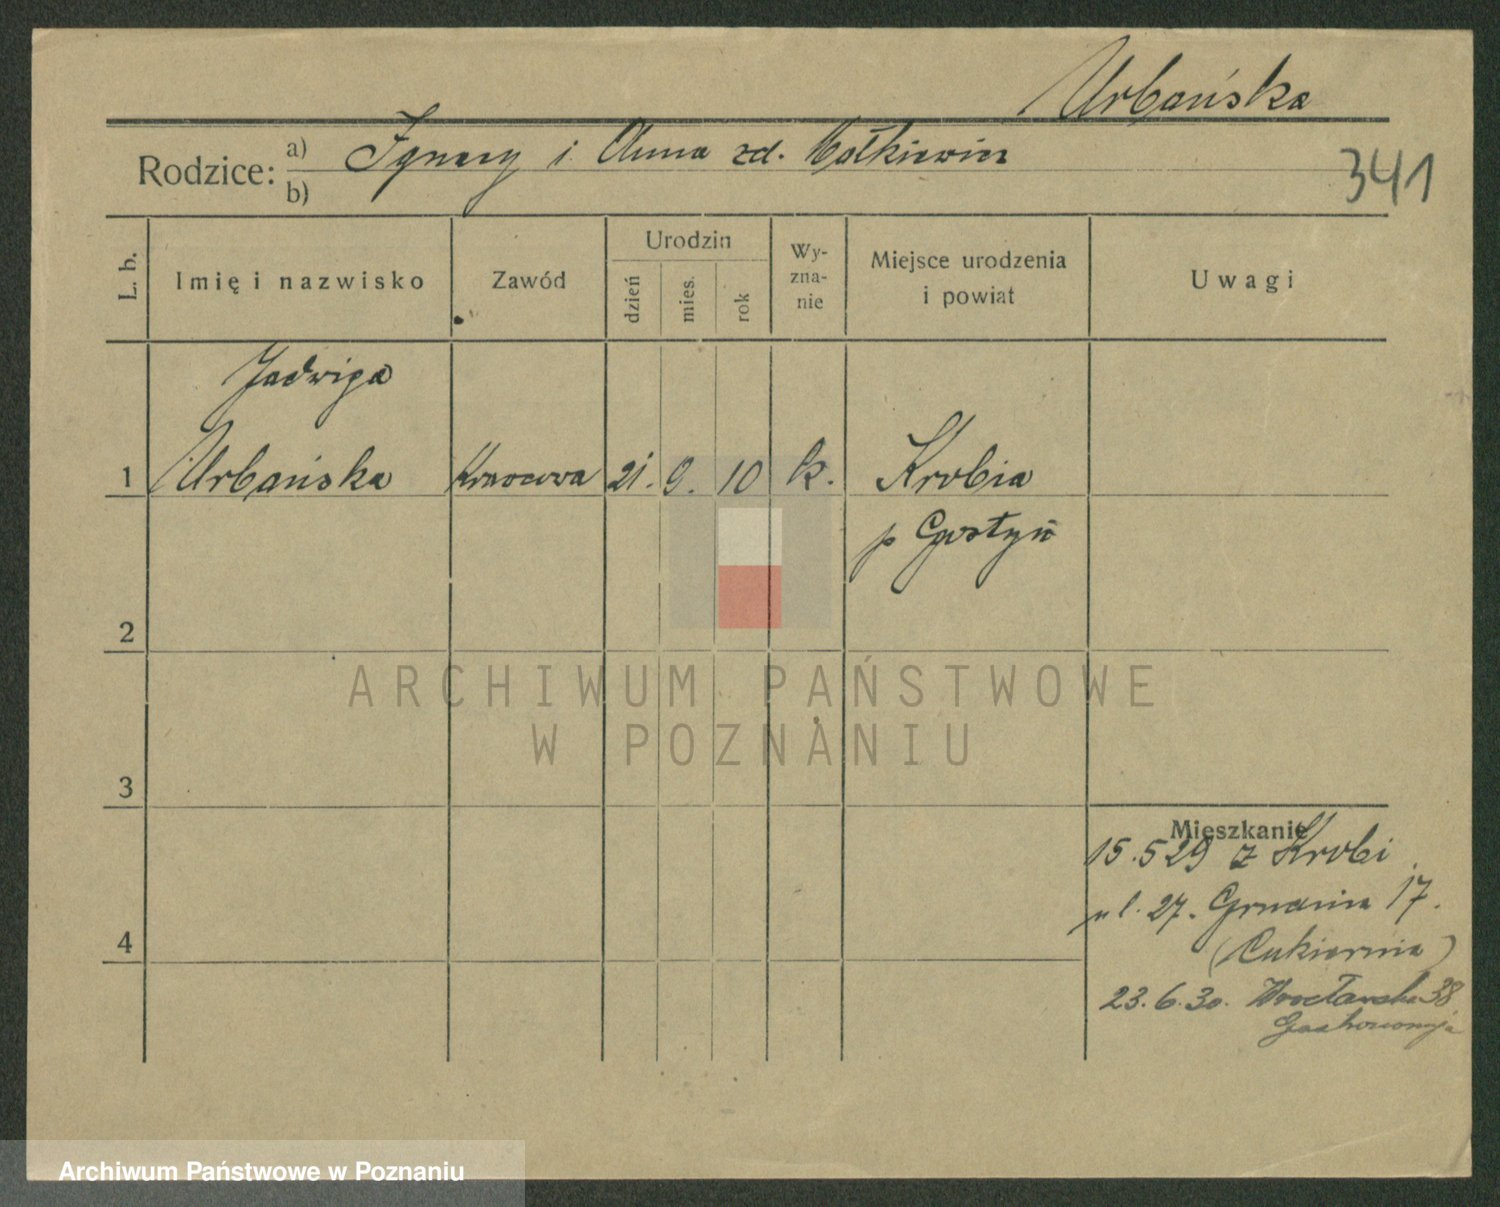 Urbańska
Rodzice: a) Ignacy i Anna zd. Małkiewicz
b)
341
L. b.
Imię i nazwisko
Zawód
Urodzin
dzień
mies.
rok
Wy-
zna-
nie
Miejsce urodzenia
i powiat
Uwagi
Jadwiga
1 Urbańska Krawcowa 21. 9. 10 k. Krobia
p Gostyń
2
3
4
Mieszkanie
15.5 29 z Krobi
ul. 27. Grudnia 17.
(Cukiernia)
23.6.30. Wrocławska 38
Gastronomja
ARCHIWUM PAŃSTWOWE
W POZNANIU
Archiwum Państwowe w Poznaniu